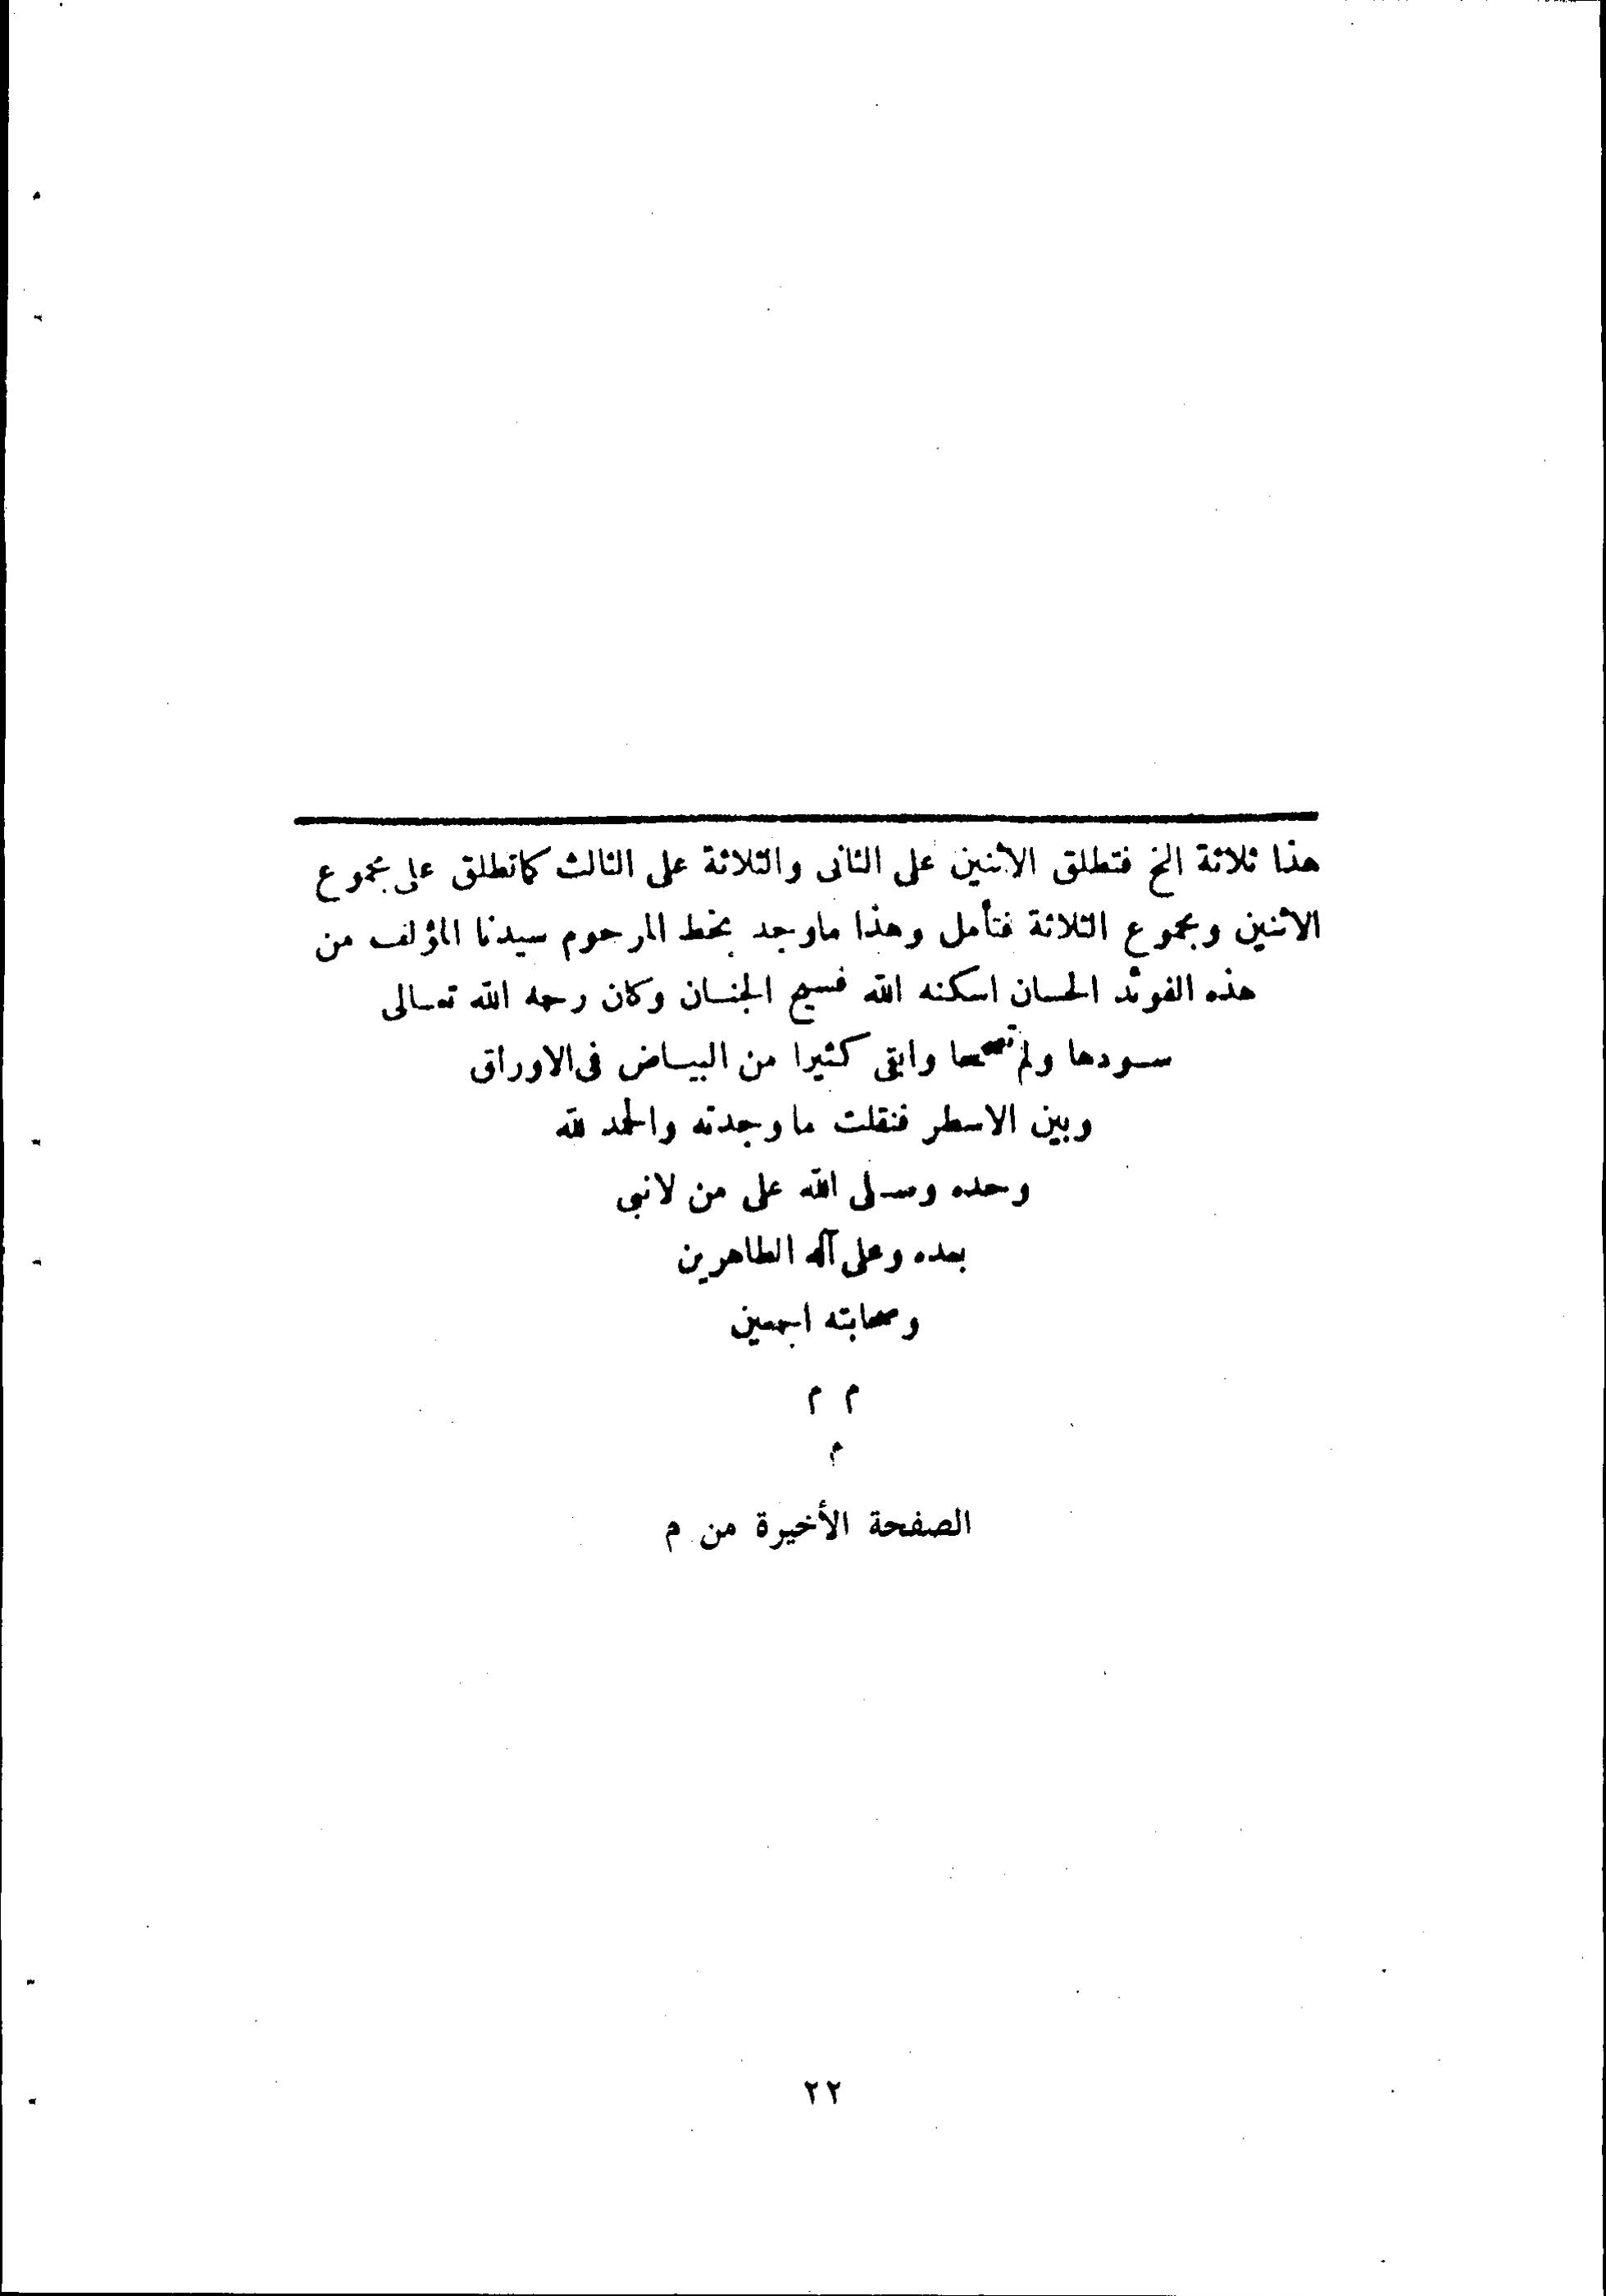 هذا ثلاثة الخ فتطلق الاثنين على الثانى والثلاثة على الثالث كماتطلق على مجموع
الاثنين ومجموع الثلاثة فتأمل وهذا ماوجد بخط المرحوم سيدنا المؤلف من
هذه الفوئد الحسان اسكنه الله فسيح الجنسان وكان رحمه الله تعالى
سودها ولم وابقى كثيرا من البياض فى الاوراق
وبين الاسطر فنقلت ماوجدته والحمد لله
وحده وصلى الله على من لانبى
بعده وعلى آله الطاهرين
وصحابته اجمعين
م م
م
الصفحة الأخيرة من م
٢٢